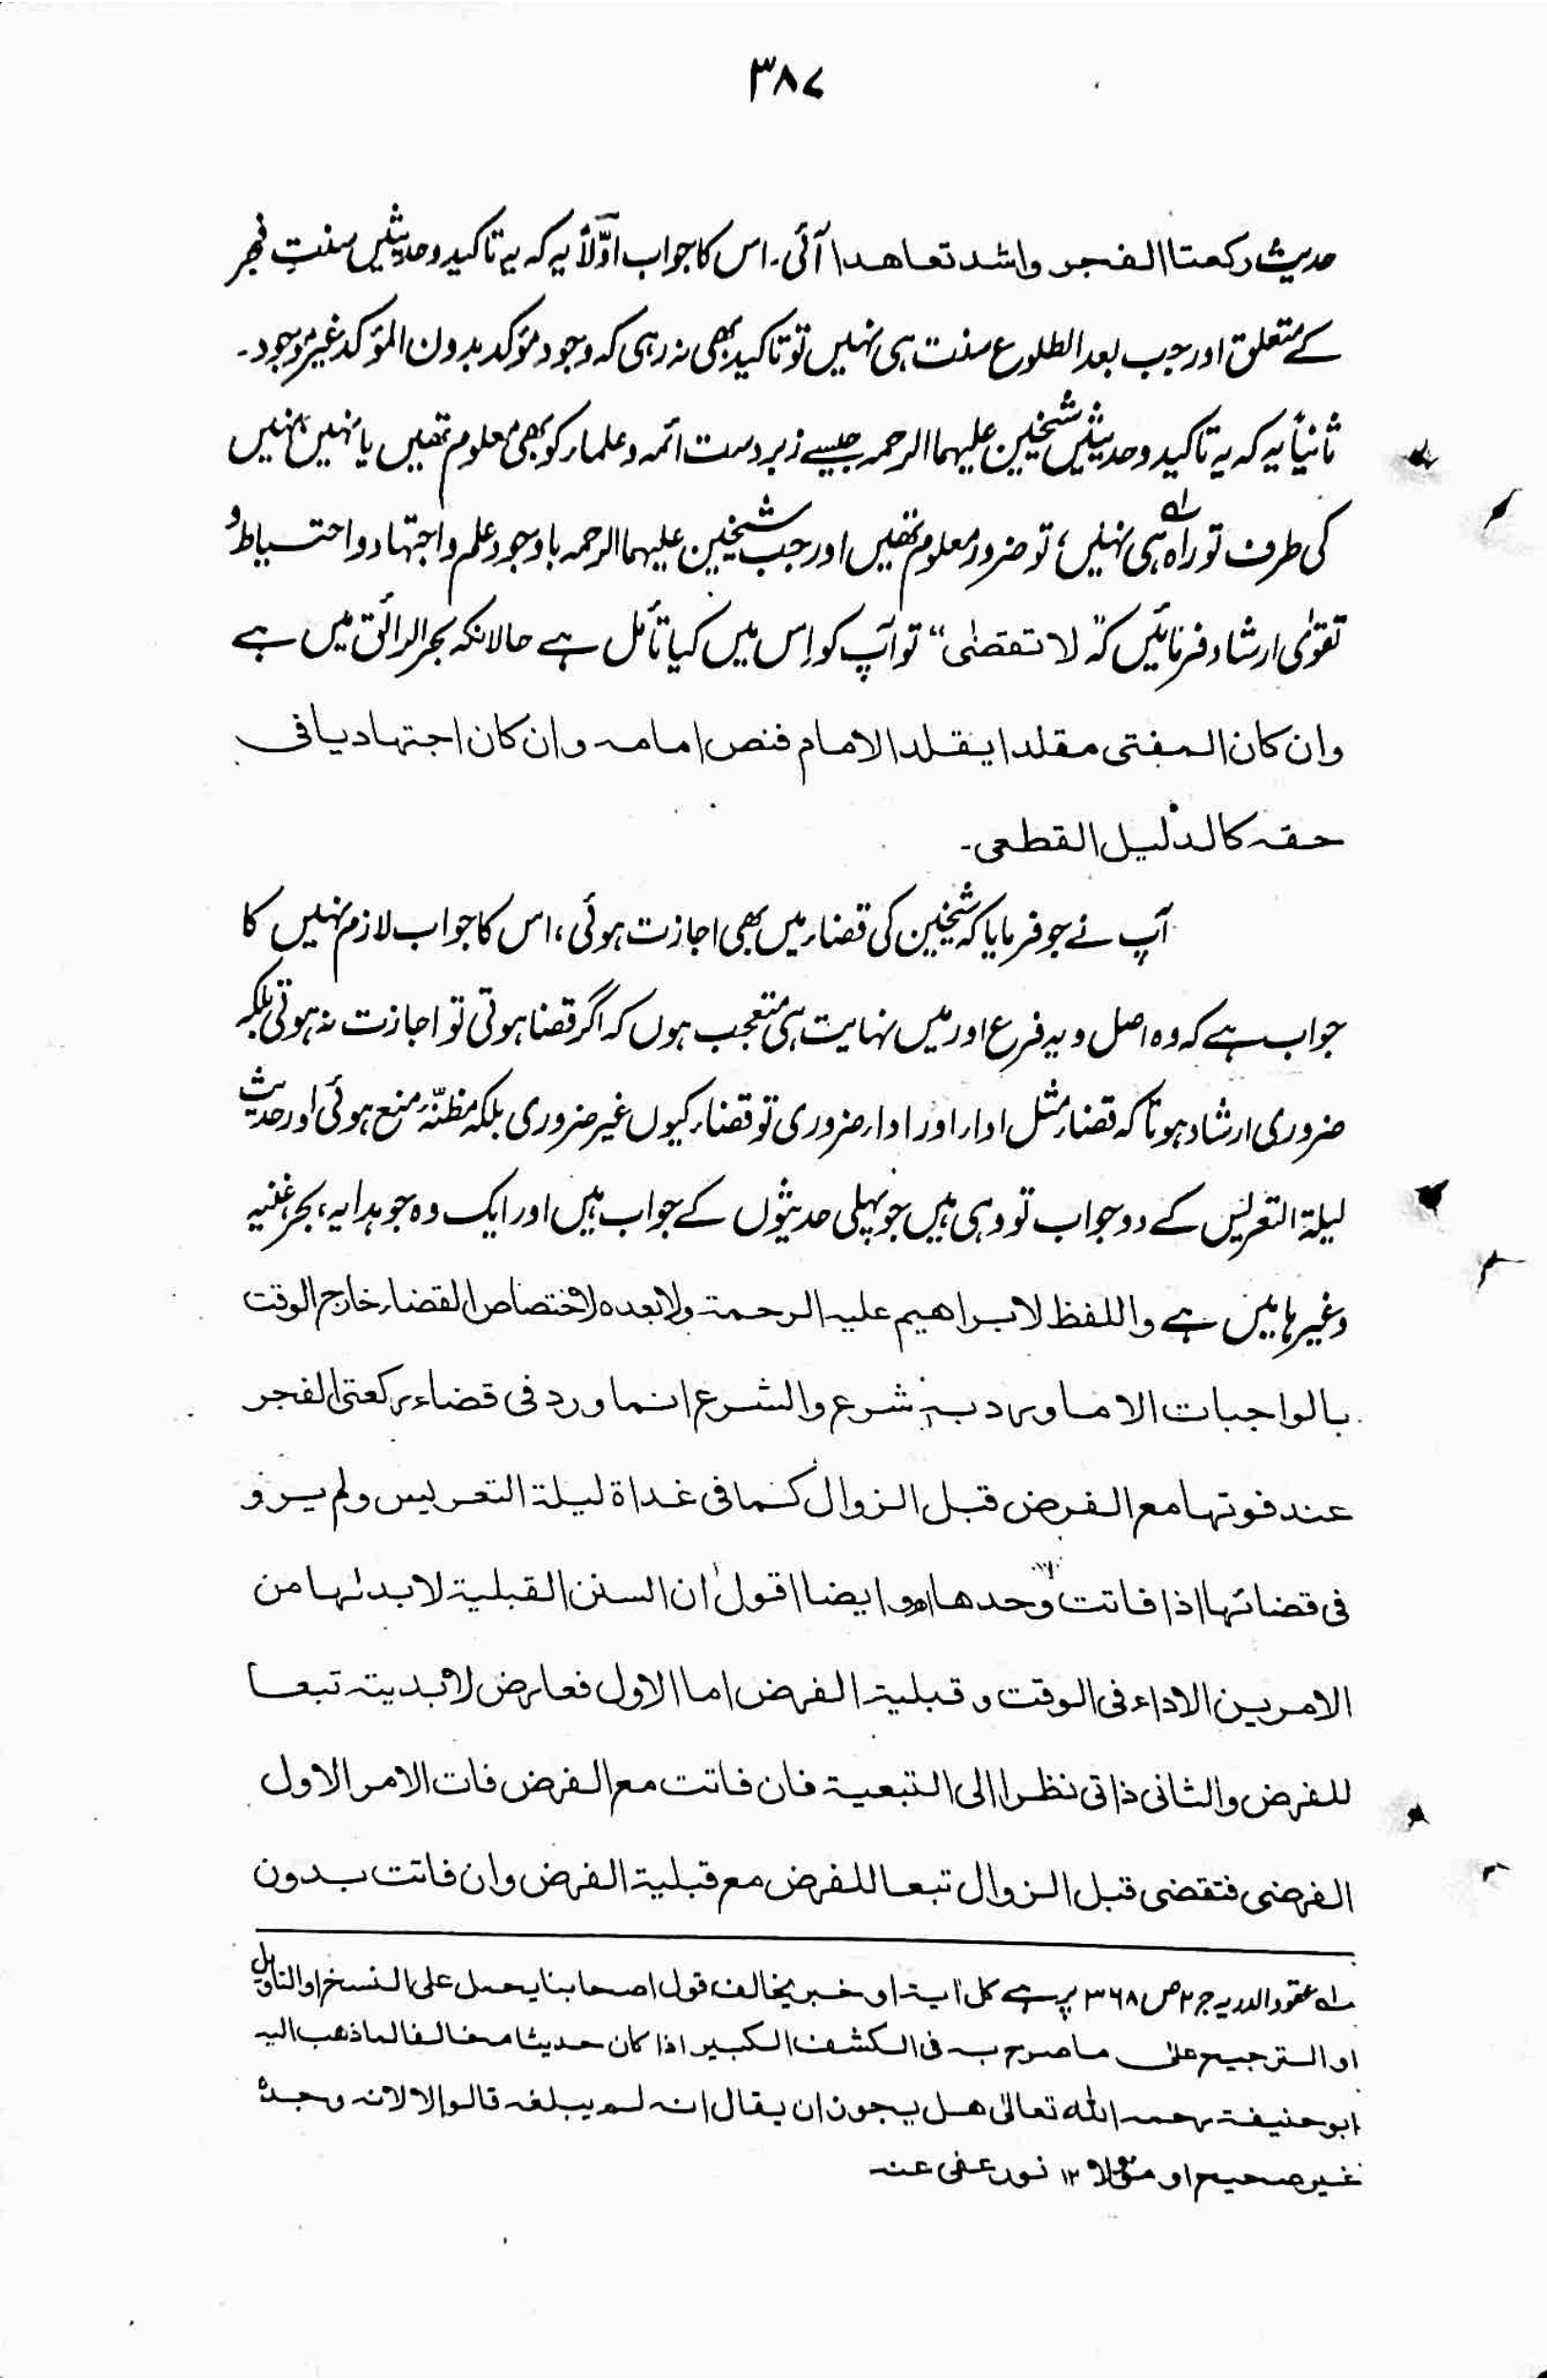 ۳۸۷
حدیث رکعتا الفجر واشد تعاهدا آئی۔ اس کا جواب اوّلاً یہ کہ یہ تاکید و حدیثیں سنتِ فجر
کے متعلق اور جب بعد الطلوع سنت ہی نہیں تو تاکید بھی نہ رہی کہ وجود مؤکد بدون المؤکد غیر موجود۔
ثانیاً یہ کہ یہ تاکید و حدیثیں شیخین علیہما الرحمہ جیسے زبردست ائمہ و علماء کو بھی معلوم تھیں یا نہیں، نہیں
کی طرف تو راہ ہی نہیں ؎۱، تو ضرور معلوم تھیں اور جب شیخین علیہما الرحمہ باوجود علم و اجتہاد و احتیاط و
تقوٰی ارشاد فرمائیں کہ ”لا تقضٰی“ تو آپ کو اِس میں کیا تأمل ہے حالانکہ بحر الرائق میں ہے
وان کان المفتی مقلدا یقلد الامام فنص امامہ وان کان اجتہادیا فی
حقہ کالدلیل القطعی۔
آپ نے جو فرمایا کہ شیخین کی قضاء میں بھی اجازت ہوئی، اس کا جواب لازم نہیں کا
جواب ہے کہ وہ اصل و یہ فرع اور میں نہایت ہی متعجب ہوں کہ اگر قضا ہوتی تو اجازت نہ ہوتی بلکہ
ضروری ارشاد ہوتا کہ قضاء مثل اداء اور اداء ضروری تو قضاء کیوں غیر ضروری بلکہ مظنّہ منع ہوئی اور حدیث
لیلۃ التعریس کے دو جواب تو وہی ہیں جو پہلی حدیثوں کے جواب ہیں اور ایک وہ جو ہدایہ، بحر، غنیہ
وغیرہا میں ہے واللفظ لابراھیم علیہ الرحمۃ ولا بعدہ لاختصاص القضاء خارج الوقت
بالواجبات الا ما ورد بہ شرع والشرع انما ورد فی قضاء رکعتی الفجر
عند فوتہا مع الفرض قبل الزوال کما فی غداۃ لیلۃ التعریس ولم یرو
فی قضائہا اذا فاتت وحدھا اھ وایضا اقول ان السنن القبلیۃ لابد لہا من
الامرین الاداء فی الوقت و قبلیۃ الفرض اما الاول فعارض لابدیتہ تبعا
للفرض والثانی ذاتی نظرا الی التبعیۃ فان فاتت مع الفرض فات الامر الاول
الفرضی فتقضی قبل الزوال تبعا للفرض مع قبلیۃ الفرض وان فاتت بدون
؎۱ عقود الدریہ ج ۲ ص ۳۶۸ پر ہے کل اٰیۃ او خبر یخالف قول اصحابنا یحمل علی النسخ او التاویل
او الترجیح علی ما صرح بہ فی الکشف الکبیر اذا کان حدیثا مخالفا لما ذھب الیہ
ابو حنیفۃ رحمہ اللہ تعالیٰ ھل یجوز ان یقال انہ لم یبلغہ قالوا لا لانہ وجدہ
غیر صحیح او مؤولا ۱۲ نور عفی عنہ